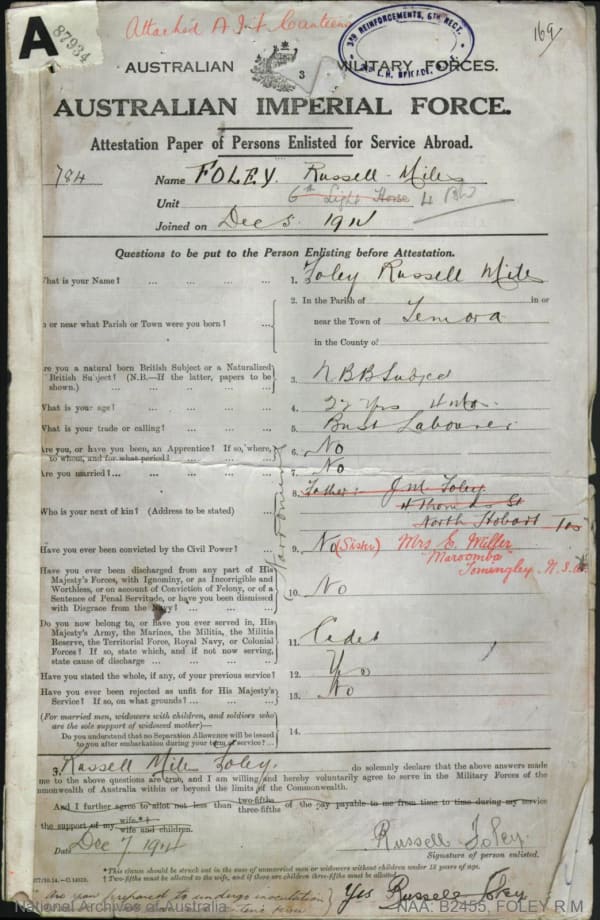 A
87934
Attached A.I.F Canteens
3RD REINFORCEMENTS, 6TH REGT.
L.H. BRIGADE
169
AUSTRALIAN MILITARY FORCES.
3
AUSTRALIAN IMPERIAL FORCE.
Attestation Paper of Persons Enlisted for Service Abroad.
784
Name FOLEY. Russell Miles
Unit 6th Light Horse
Joined on Dec 5 1914
Questions to be put to the Person Enlisting before Attestation.
What is your Name? ... ... ... 1. Foley Russell Miles
n or near what Parish or Town were you born? ... 2. In the Parish of in or
near the Town of Temora
in the County of
re you a natural born British Subject or a Naturalized
British Subject? (N.B.—If the latter, papers to be
shown.) ... ... ... ... 3. NBB Subject
What is your age? ... ... ... 4. 22 yrs 4 mos.
What is your trade or calling? ... ... 5. Bush Labourer
Are you, or have you been, an Apprentice? If so, where,
to whom, and for what period? ... ... 6. No
Are you married? ... ... ... 7. No
Who is your next of kin? (Address to be stated) ... 8. Father:- J M Foley
4 Thomas St
North Hobart Tas
Have you ever been convicted by the Civil Power? ... 9. No (Sister) Mrs E. Miller
"Maroomba"
Tomingley N.S.W.
Have you ever been discharged from any part of His
Majesty's Forces, with Ignominy, or as Incorrigible and
Worthless, or on account of Conviction of Felony, or of a
Sentence of Penal Servitude, or have you been dismissed
with Disgrace from the Navy? ... ... ... 10. No
Do you now belong to, or have you ever served in, His
Majesty's Army, the Marines, the Militia, the Militia
Reserve, the Territorial Force, Royal Navy, or Colonial
Forces? If so, state which, and if not now serving,
state cause of discharge ... ... ... 11. Cadet
Have you stated the whole, if any, of your previous service? 12. Yes
Have you ever been rejected as unfit for His Majesty's
Service? If so, on what grounds? ... ... 13. No
(For married men, widowers with children, and soldiers who
are the sole support of widowed mother)—
Do you understand that no Separation Allowance will be issued
to you after embarkation during your term of service? ... 14.
Russell Miles Foley. do solemnly declare that the above answers made
me to the above questions are true, and I am willing and hereby voluntarily agree to serve in the Military Forces of the
mmonwealth of Australia within or beyond the limits of the Commonwealth.
And I further agree to allot not less than two-fifths three-fifths of the pay payable to me from time to time during my service
the support of my wife.*† wife and children.
Date Dec 7 1914
Russell Foley.
Signature of person enlisted.
*This clause should be struck out in the case of unmarried men or widowers without children under 18 years of age.
† Two-fifths must be allotted to the wife, and if there are children three-fifths must be allotted.
Are you prepared to undergo inoculation
Yes Russell Foley
National Archives of Australia
NAA: B2455, FOLEY R M